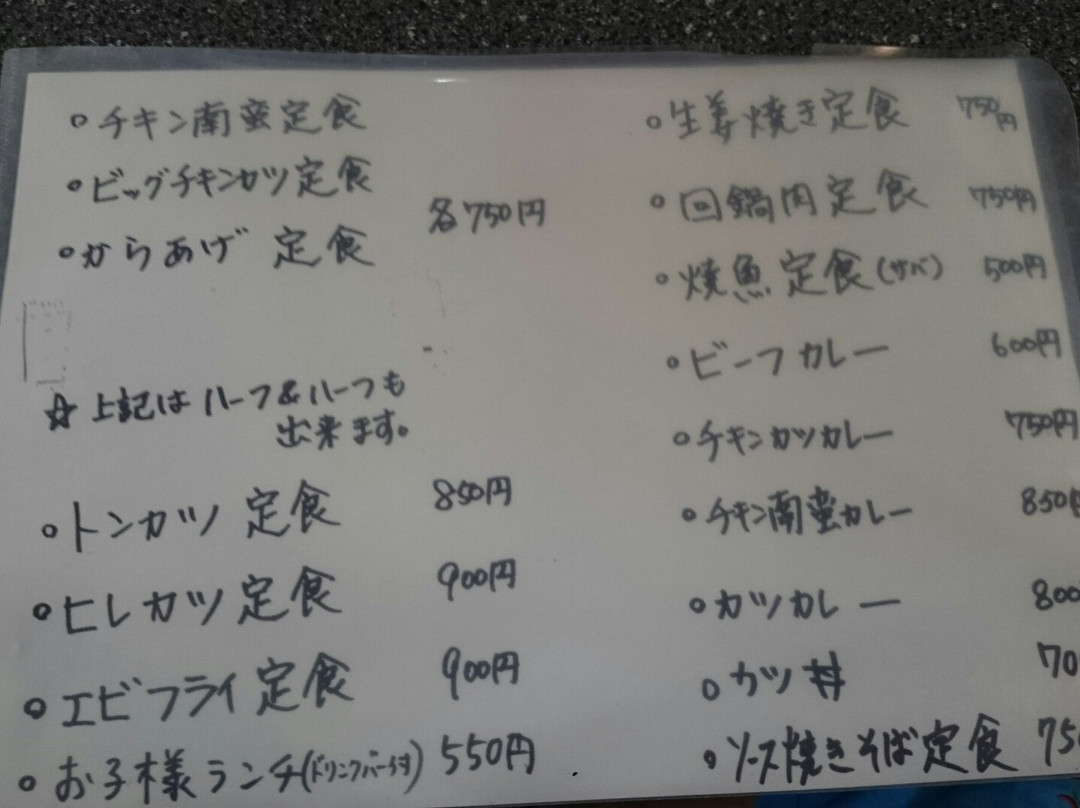 ○チキン南蛮定食
○ビッグチキンカツ定食
各750円
○からあげ 定食
☆ 上記は ハーフ&ハーフも
出来ます。
○トンカツ 定食 850円
○ヒレカツ 定食 900円
○エビフライ 定食 900円
○お子様ランチ(ドリンクバー付) 550円
○生姜焼き定食 750円
○回鍋肉定食 750円
○焼魚定食(サバ) 500円
○ビーフカレー 600円
○チキンカツカレー 750円
○チキン南蛮カレー 850円
○カツカレー 800
○カツ丼 70
○ソース焼きそば定食 75